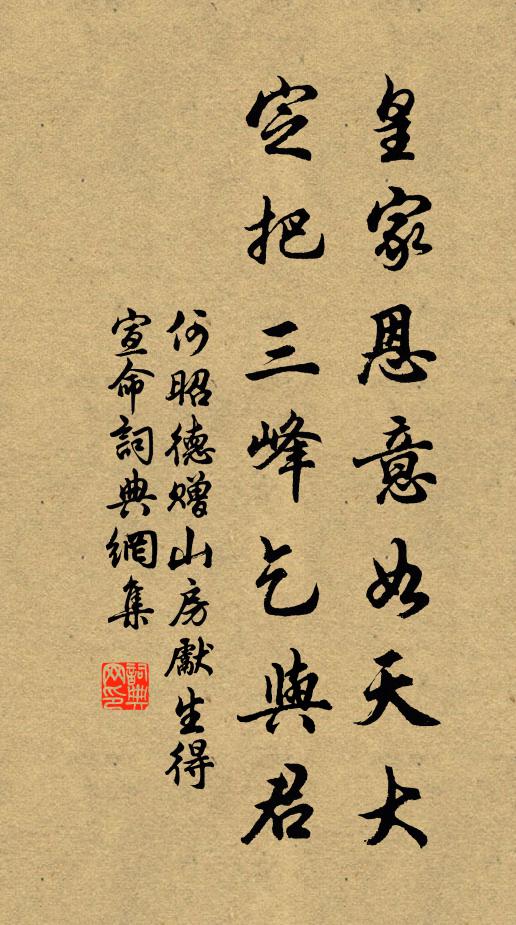 皇家恩意如天大
定把三峰乞與君
何昭德贈山房獻生得
宣命詞典網集
詞典网印